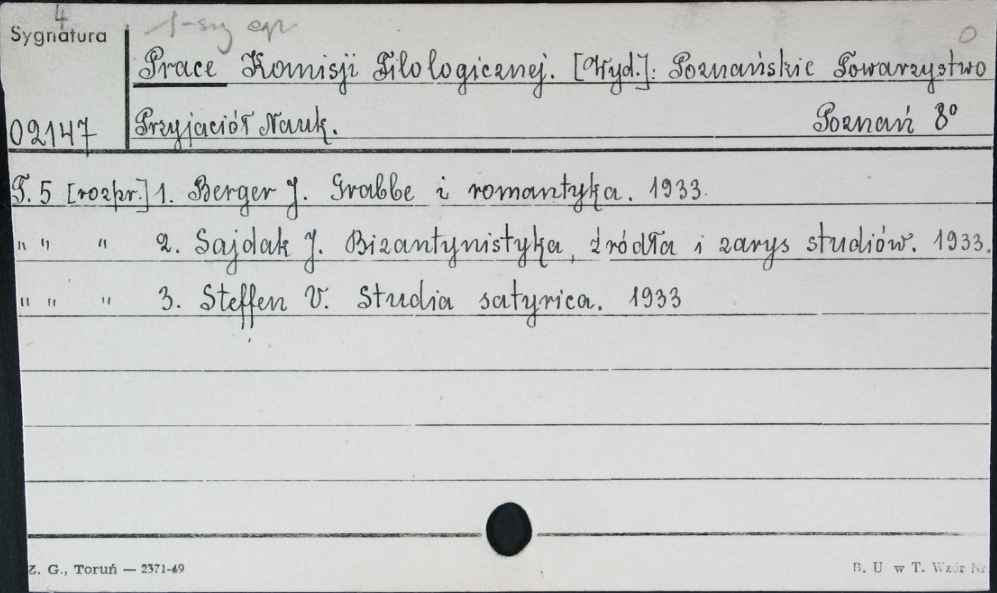 4
Sygnatura
1-szy egz
0
Prace Komisji Filologicznej. [Wyd.]: Poznańskie Towarzystwo
02147 Przyjaciół Nauk. Poznań 8°
T. 5 [rozpr.] 1. Berger J. Grabbe i romantyka. 1933.
" " " 2. Sajdak J. Bizantynistyka, źródła i zarys studiów. 1933.
" " " 3. Steffen V. Studia satyrica. 1933
Z. G., Toruń — 2371-49
B. U w T. Wzór Nr